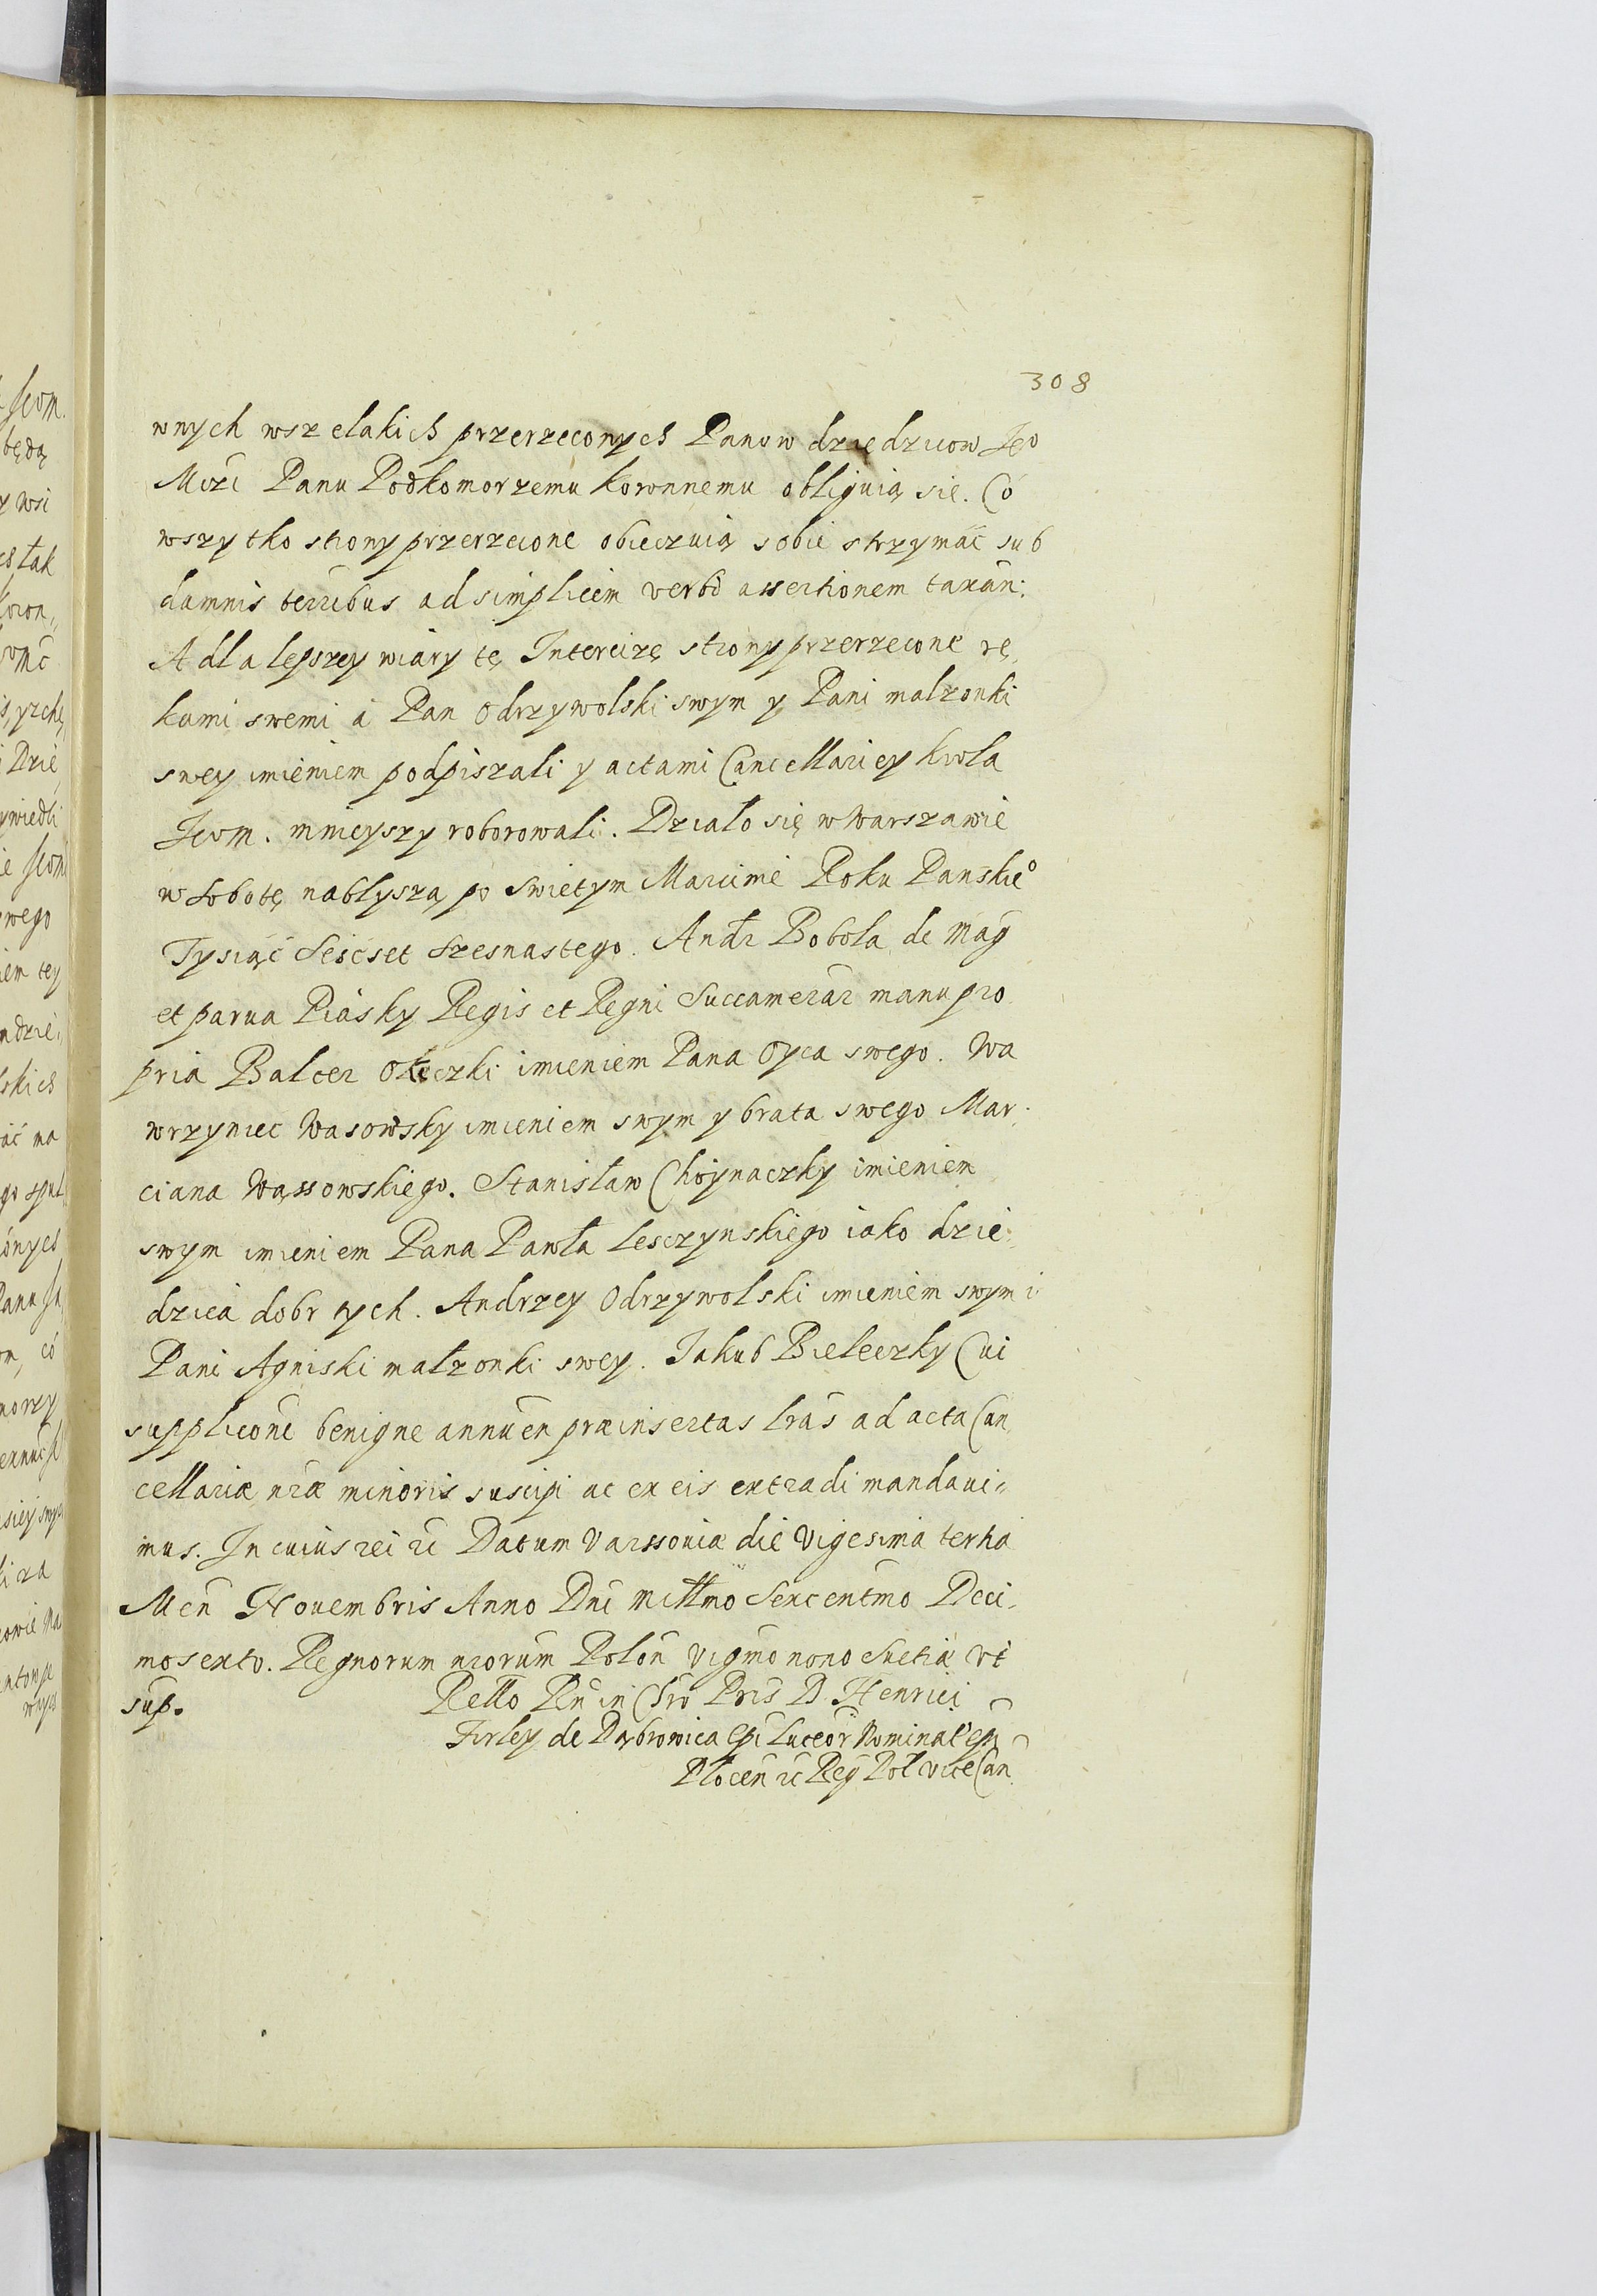 308
wnych wszelakich przerzeconych Panow dziędzicow Jeo
Mczi Panu Podkomorzemu koronnemu obliguią sie. Co
wszytko strony przerzecone obieczuią sobie strzymać sub
damnis terribus ad simplicem verbo assertionem taxan:
A dla lepszey wiary tę Intercizę strony przerzecone rę,
kami swemi a Pan Odrzywolski swym y Pani malzonki
swey imieniem podpiszali y actami Cancellariey krola
Jeom. mnieyszy roborowali. Dzialo się w Warszawie
w Sobotę nablyszą po Swietym Marcinie Roku Panskieo
Tysiąć Sesćset Szesnastego. Andr Bobola de Mag
et parua Piasky Regis et Regni Succamerar manu pro
pria Balcer Okeczki imieniem Pana Oyca swego. Wa
wrzyniec Wasowsky imieniem swym y brata swego Mar:
ciana Wąssowskiego. Stanisław Choynaczky imieniem
swym imieniem Pana Pawła Lesczynskiego iako dzie:
dzica dobr tych. Andrzey Odrzywolski imieniem swym i
Pani Agniski małzonki swey. Jakub Bieleczky Cui
supplicōni benigne annuen præinsertas lras ad acta Can
cellariæ nræ minoris suscipi ac ex eis extradi mandaui=
mus. In cuius rei rc Datum Varssouiæ die Vigesima tertia
Men Nouembris Anno Dni Millmo Sexcentmo Deci,
mosexto. Regnorum nrorum Polon Vigmo nono Suetiæ vt
sup. Rello Rn in Chro Pris D. Henrici
Firley de Dąbrowica Epi Luceor Nominat Epi
Plocen rc Reg Pol vice Can